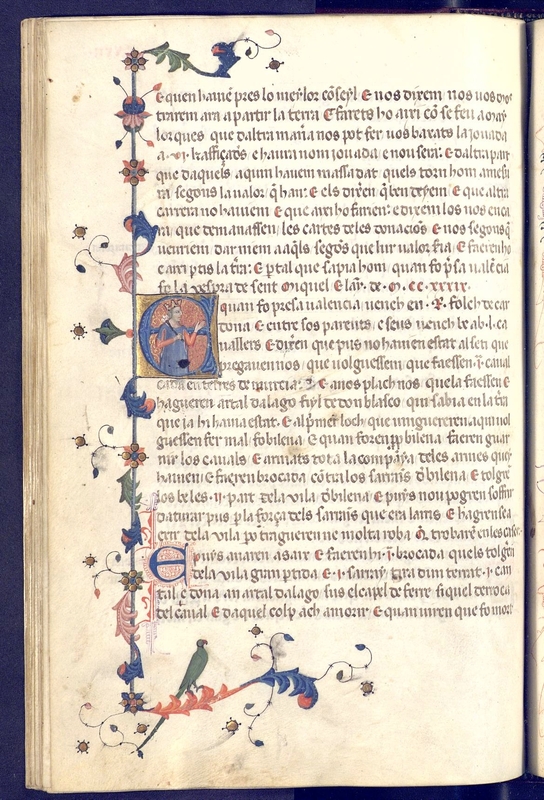 E quen hauem pres lo meylor cõseyl. E nos dixem nos uos
trarem ara apartir la terra E farets ho axi cõ se feu a
lorques que daltra mãa nos pot fer uos baxats la jouada
a .vi. kaffiçades e haura nom jouada e no u sera. E daltra part
que daquels aqui hauem massa dat quels torn hom a
ra segons la ualor q̃ han. E els dixẽn q̃ be deyem E que altra
carrera no hauem E que axi ho farem. e dixem los nos
ra que demanassen les cartes de les donacios E nos segons q̃
ueuriem darniem a aq̃ls segõs que lur ualor E faerenho
e axi ptis la tr̃a. E p tal que sapia hom quan fo p̃sa ualẽcia
fo la vespra de sent Miquel E lay̆. de .M. CC. xxxix.
quan fo presa ualencia uench en .R. folch de car
dona E entre sos parents. e seus uench be ab .L. ca
uallers E dixẽn que pus no hauien estat al seti que
pregauen nos que uolguessem que faessen .i. caual
cada en terres de murcia. E a nos plach nos. quela faessen E
hagueren artal dalago fiyl de don blasco. qui sabia en la tr̃a
que ja hi hauia estat. E al p̃mer loch que uingueren aquin uol
guessen fer mal fo bilena E quan foren p bilena faeren guar
nir los cauals E armats tota la compay̆a deles armes que
hauien. E faeren brocada cõtra los sarrais d̃ bilena E
los be les .ii. part dela uila d̃ bilena E puys nou pogren soffrir
daturar pus p la força dels sarrais que era laïns E
exir dela uila po tingueren ne molta roba trobarẽ en les cases
E puys anaren a saix E faerenhi .i. brocada quels tolgrẽ
dela uila gran ptida E .i. sarray tira dun terrat .i. can
tal e dona an artal dalago sus el capel de ferre. si quel derroca
del caual E daquel colp ach a morir E quan uiren que fo mort